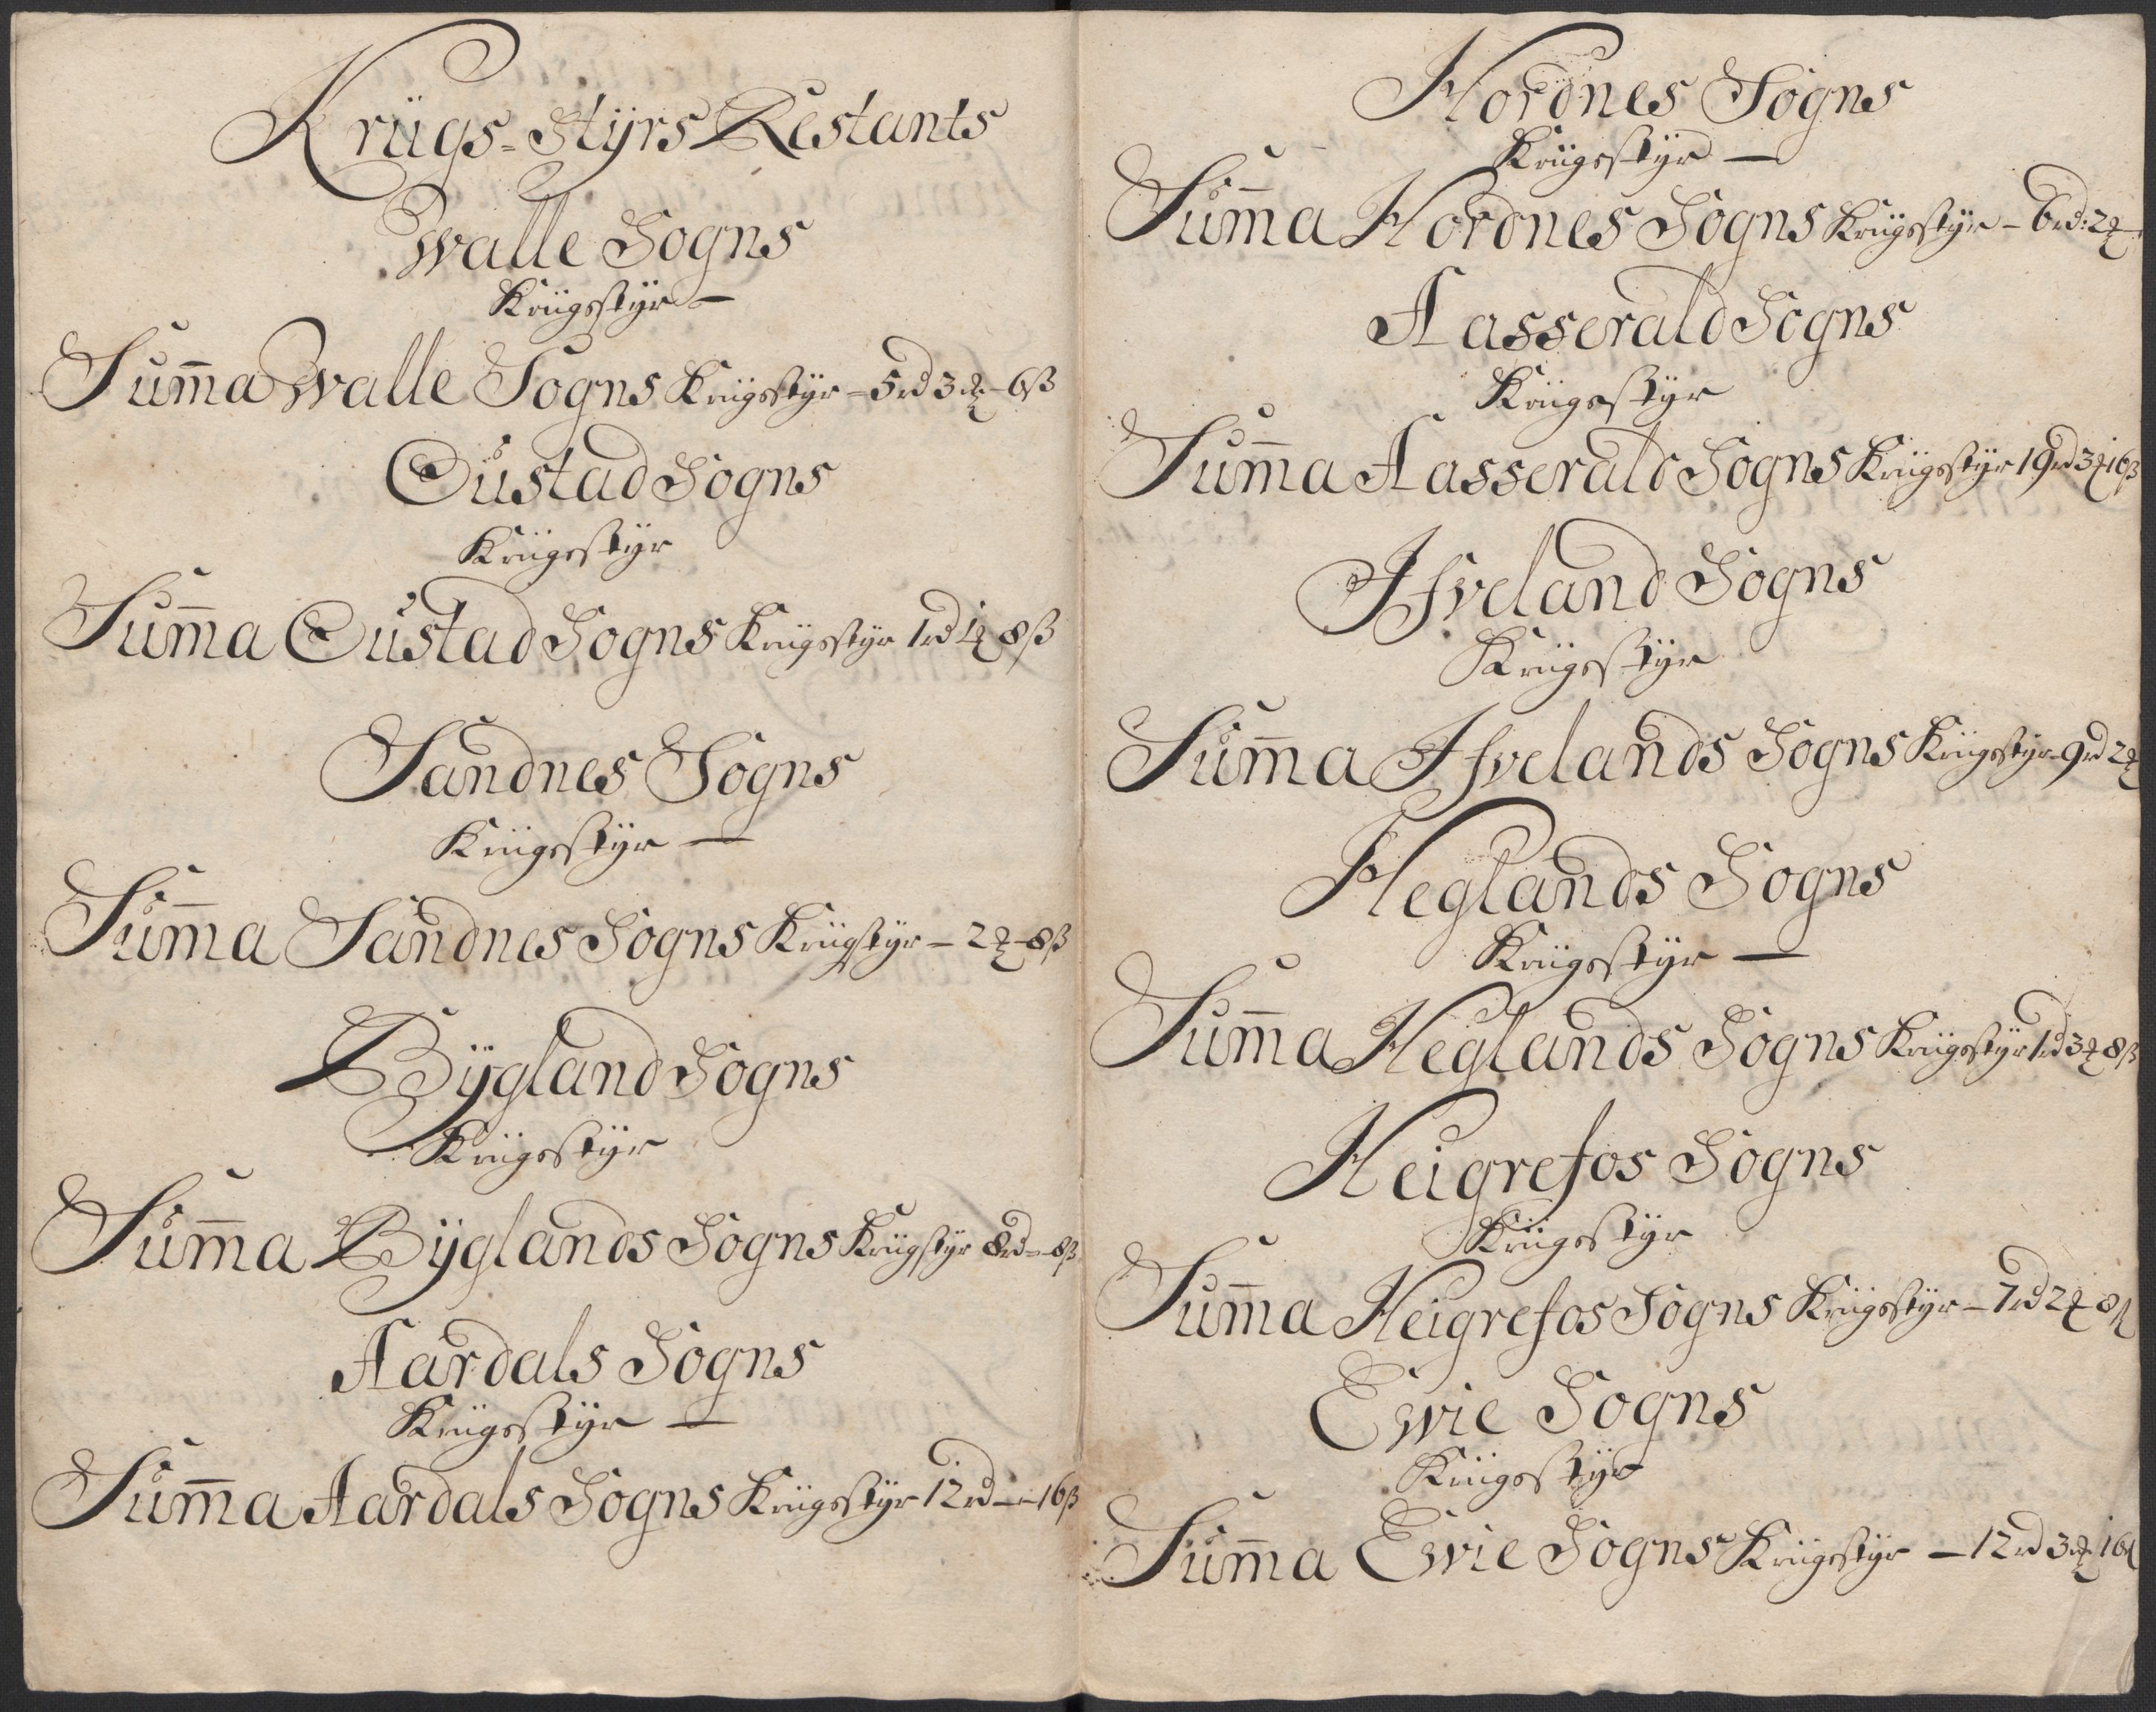 Krügs-Stÿrs Restants
Walle Sogns
Krügsstÿr —
Sum̄a Walle Sogns Krügsstÿr – 5 rd 3 ꝗ – 6 ß
Oustad Sogns
Krügsstÿr
Sum̄a Oustad Sogns Krügsstÿr 1 rd 1 ꝗ 8 ß
Sandnes Sogns
Krügsstÿr —
Sum̄a Sandnes Sogns Krügstÿr – 2 ꝗ – 8 ß
Bÿgland Sogns
Krügsstÿr
Sum̄a Bÿglands Sogns Krügstÿr 8 rd – 8 ß
Aardals Sogns
Krügsstÿr —
Sum̄a Aardals Sogns Krügsstÿr 12 rd — 16 ß
Hordnes Sogns
Krügsstÿr —
Sum̄a Hordnes Sogns Krügsstÿr – 6 rd: 2 ꝗ
Aasserald Sogns
Krügsstÿr
Sum̄a Aasserald Sogns Krügsstÿr 19 rd 3 ꝗ 16 ß
Ifveland Sogns
Krügsstÿr
Sum̄a Ifvelands Sogns Krügsstÿr – 9 rd 2 ꝗ
Heglands Sogns
Krügsstÿr —
Sum̄a Heglands Sogns Krügsstÿr 1 rd 3 ꝗ 8 ß
Heigrefos Sogns
Krügsstÿr
Sum̄a Heigrefos Sogns Krügsstÿr – 7 rd 2 ꝗ 8 ß
Ewie Sogns
Krügsstÿr
Sum̄a Ewie Sogns Krügsstÿr – 12 rd 3 ꝗ 16 ß